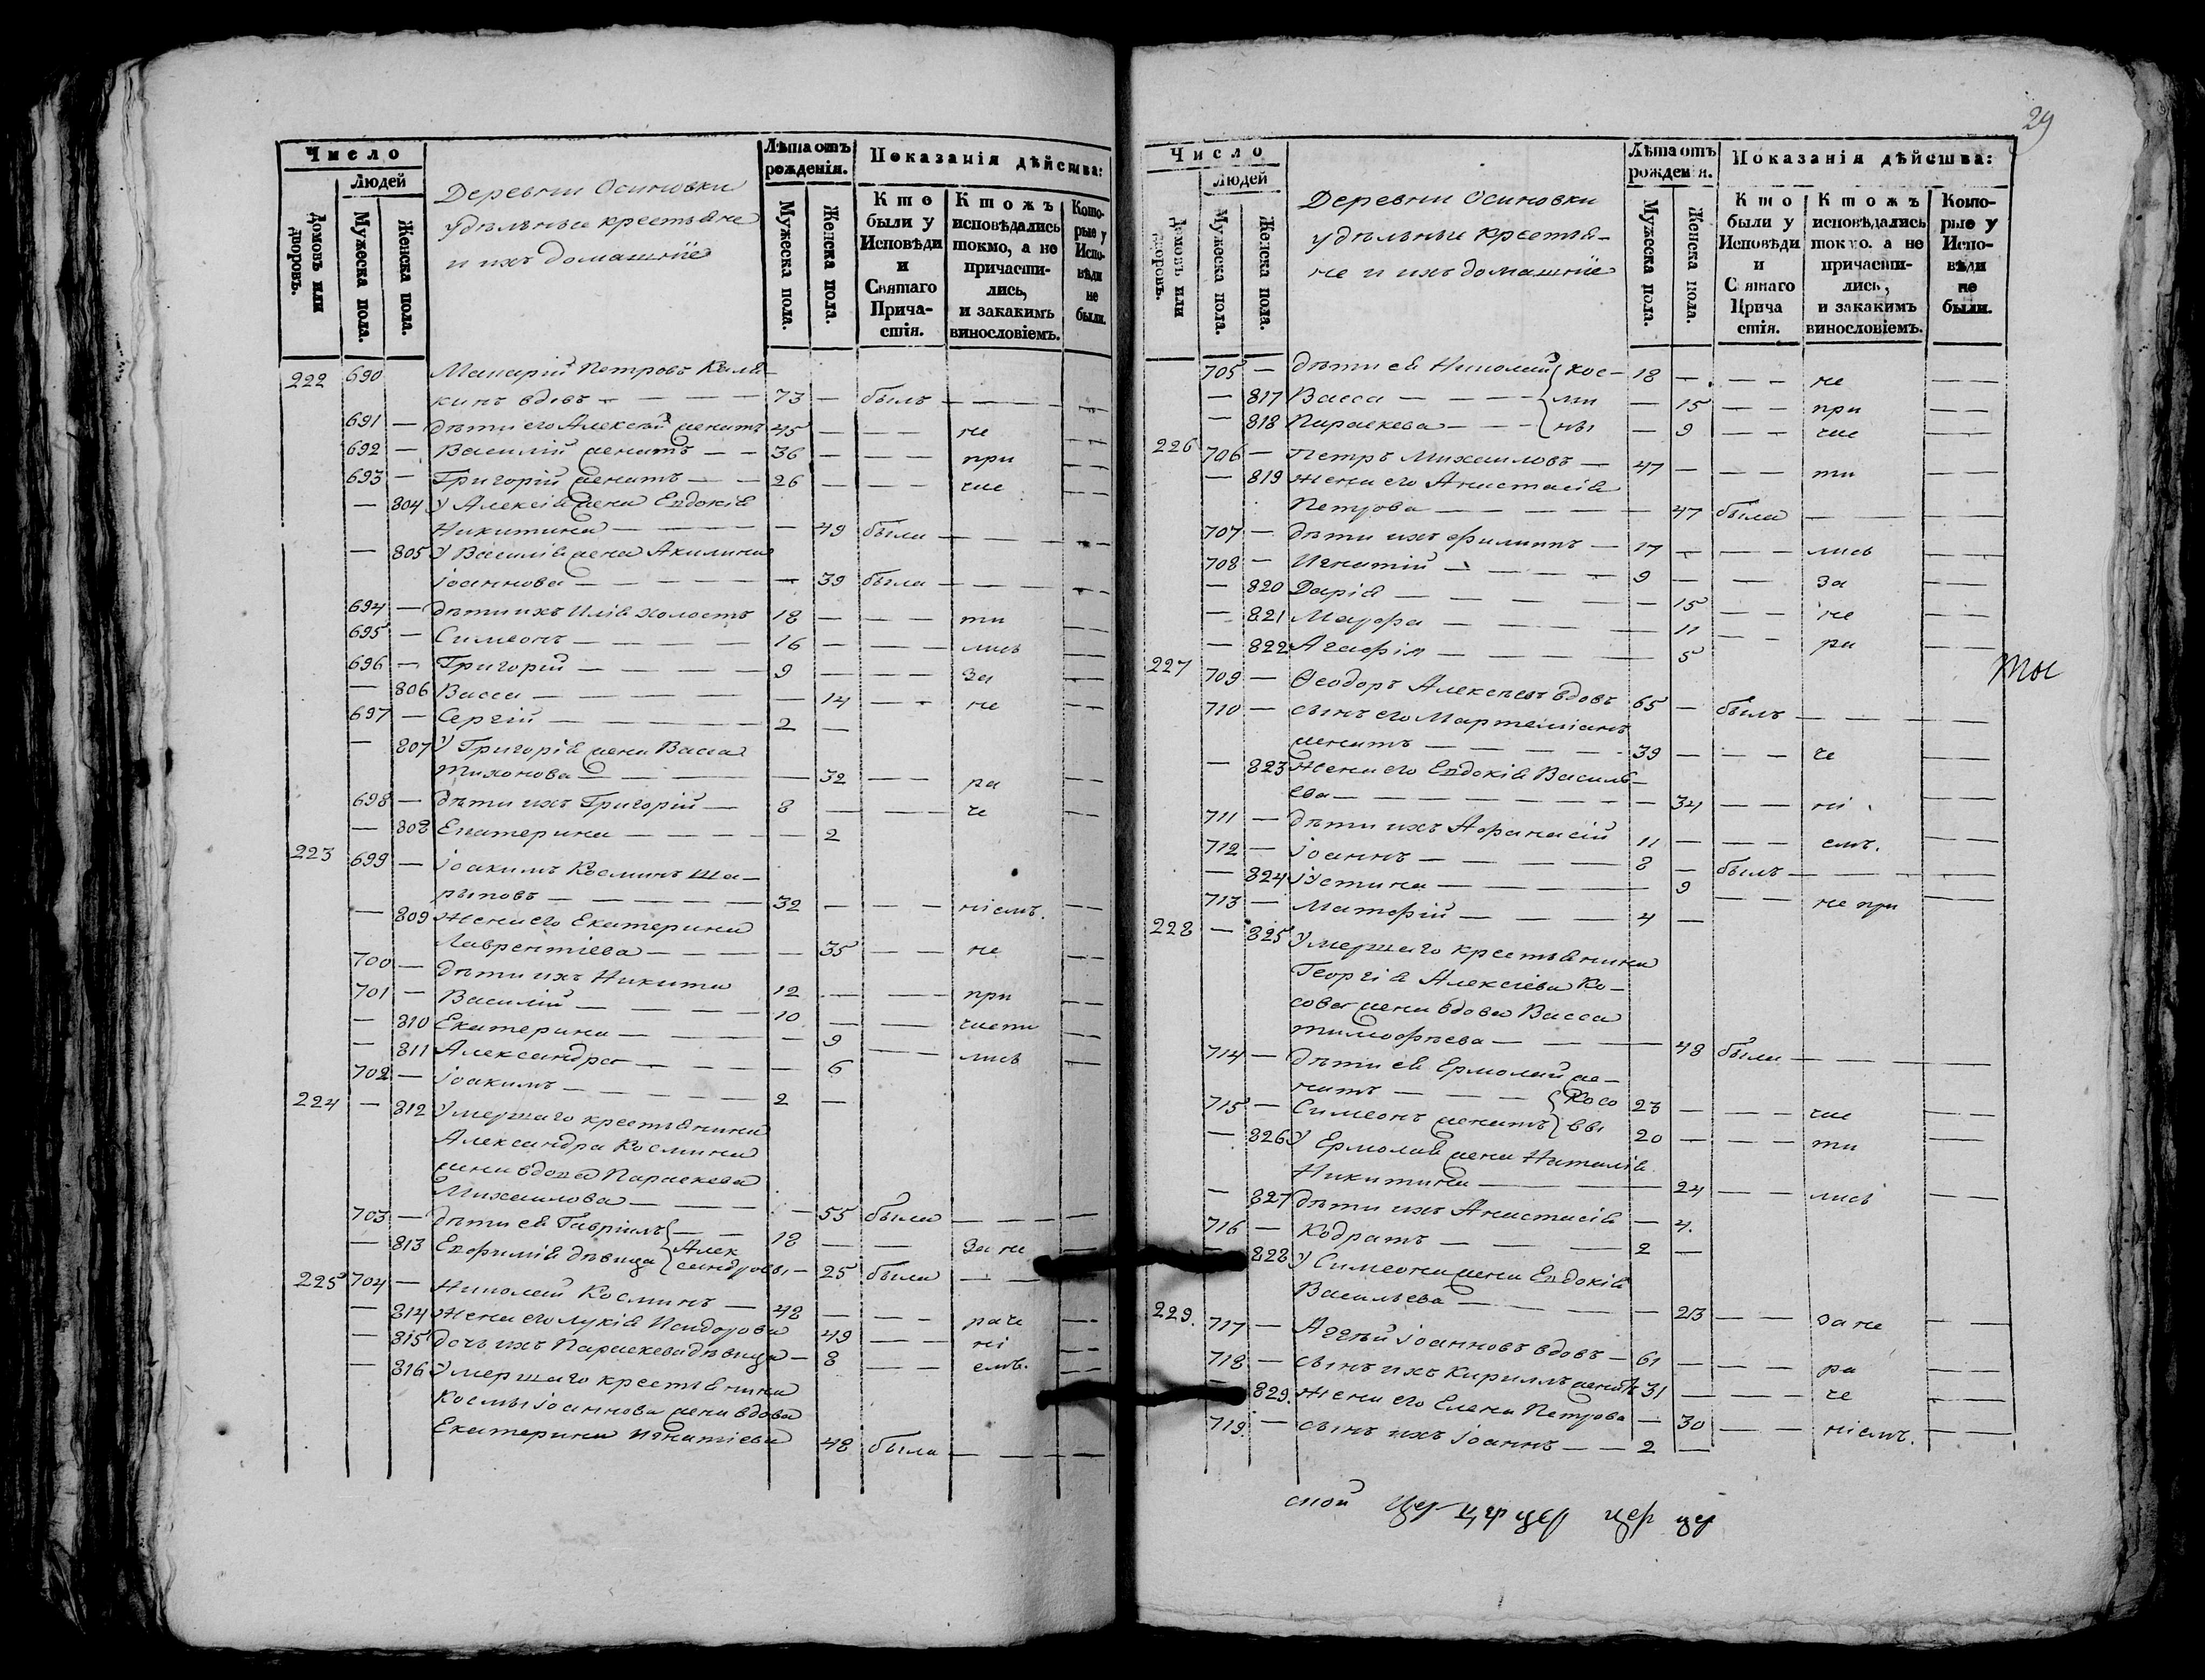 Число
Людей
Домовъ или дворовъ.
Мужеска пола.
Женска пола.
Деревни Осиновки
удѣльные крестьяне
и ихъ домашніе
Лѣта отъ рожденія.
Мужеска пола.
Женска пола.
Показанія дѣйства:
Кто были у Исповѣди и Святаго Причастія.
Ктожъ исповѣдались токмо, а не причастились, и закакимъ винословіемъ.
Которые у Исповѣди не были.
222 690 Макарій Петровъ Каля-
кинъ вдовъ — 73 — былъ —
691 — дѣти его Алексѣй женатъ 45 — — не —
692 — Василій женатъ — 36 — — при —
693 — Григорій женатъ — 26 — — час —
— 804 У Алексѣя жена Евдокія
Никитина — — 49 была —
— 805 У Василія жена Акилина
Іоаннова — — 39 была —
694 — дѣти ихъ Илія холостъ 18 — — ти —
695 — Симеонъ — 16 — — лись —
696 — Григорій — 9 — — За —
— 806 Васса — — 14 — не —
697 — Сергій — 2 —
— 807 У Григорія жена Васса
Тихонова — — 32 — ра —
698 — дѣти ихъ Григорій — 8 — — че —
— 808 Екатерина — — 2
223 699 — Іоакимъ Косминъ Ша-
рыповъ — 32 — — ніемъ. —
— 809 Жена его Екатерина
Лаврентіева — — 35 — не —
700 — дѣти ихъ Никита 12 — — при —
701 — Василій — 10 — — части —
— 810 Екатерина — — 9 — лись —
— 811 Александра — — 6
702 — Іоакимъ — 2 —
224 — 812 Умершаго крестьянина
Александра Космина
жена вдова Параскева
Михаилова — — 55 была —
703 — дѣти ея Гавріилъ — 18 — — За не —
— 813 Евфимія дѣвица Александровы — 25 была —
225 704 — Николай Косминъ — 48 — — раче —
— 814 Жена его Лукія Исидорова 49 — ні —
— 815 дочь ихъ Параскева дѣвица — 8 — емъ. —
— 816 Умершаго крестьянина
Космы Іоаннова жена вдова
Екатерина Игнатіева 48 была —
29
Число
Людей
Домовъ или дворовъ.
Мужеска пола.
Женска пола.
Деревни Осиновки
удѣльные крестья-
не и ихъ домашніе
Лѣта отъ рожденія.
Мужеска пола.
Женска пола.
Показанія дѣйства:
Кто были у Исповѣди и Святаго Причастія.
Ктожъ исповѣдались токмо, а не причастились, и закакимъ винословіемъ.
Которые у Исповѣди не были.
705 — дѣти ея Николай Кос- 18 — — не —
— 817 Васса — ми — 15 — при —
— 818 Параскева — ны — 9 — час —
226 706 — Петръ Михаиловъ — 47 — — ти —
— 819 Жена его Анастасія
Петрова — — 47 была —
707 — дѣти ихъ Филиппъ — 17 — — лись —
708 — Игнатій — 9 — — За —
— 820 Дарія — — 15 — не —
— 821 Марфа — 11 — ра —
— 822 Агафія — 5
тос
227 709 — Ѳеодоръ Алексѣевъ вдовъ 65 — былъ —
710 — сынъ его Мартеміанъ
женатъ — 39 — — че —
— 823 Жена его Евдокія Василь-
ева — — 34 — ні —
711 — дѣти ихъ Афанасій 11 — — емъ. —
712 — Іоаннъ — 8 — былъ —
— 824 Іустина — 9 — не при —
713 — Матѳій — 4 —
228 — 825 Умершаго крестьянина
Георгія Алексіева Ко-
сова жена вдова Васса
Тимофѣева — — 48 была —
714 — дѣти ея Ермолай же-
натъ — Косо 23 — — час —
715 — Симеонъ женатъ вы 20 — — ти —
— 826 У Ермолая жена Наталія
Никитина — 24 — лись —
— 827 дѣти ихъ Анастасія — 4.
716 — Кодратъ — 2 —
828 У Симеона жена Евдокія
Васильева — — 23 — за не —
229. 717 — Аггѣй Іоанновъ вдовъ — 61 — — ра —
718 — сынъ ихъ Кириллъ женатъ 31 — — че —
829. Жена его Елена Петрова — 30 — ніемъ. —
719. — сынъ ихъ Іоаннъ — 2 —
цер цер цер